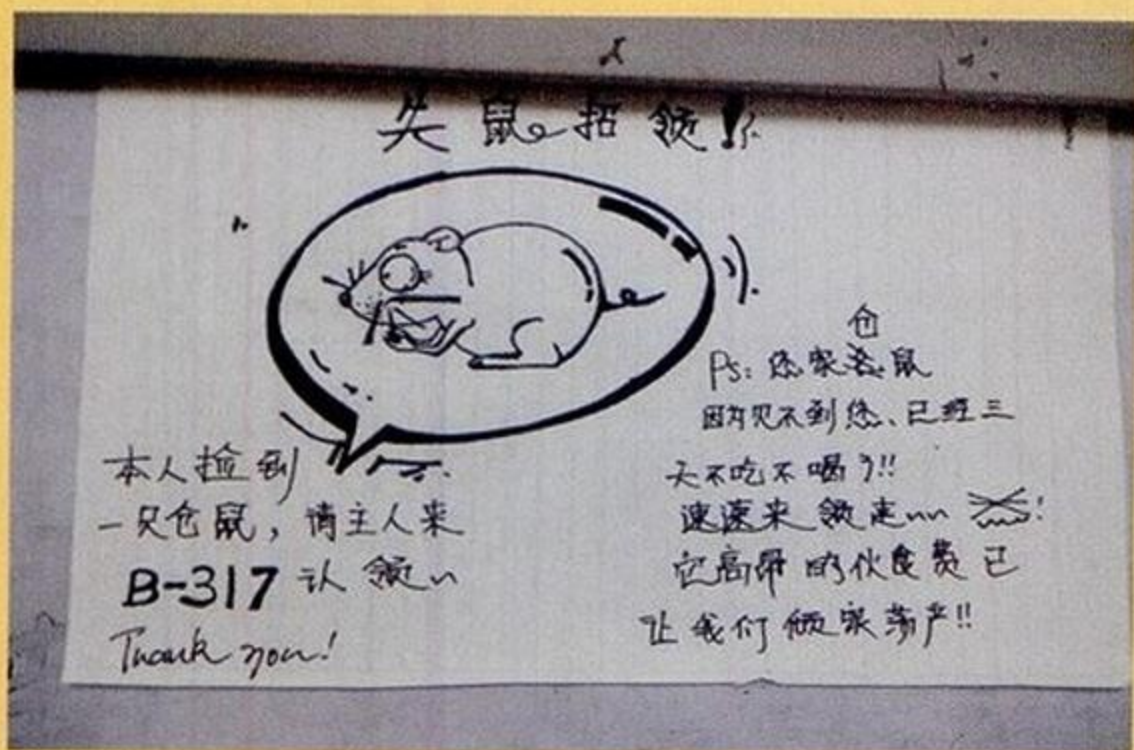 失鼠招领!!
本人捡到
一只仓鼠，请主人来
B-317 认领~
Thank you!
仓
Ps: 您家鼠
因为见不到您、已经三
天不吃不喝了!!
速速来领走~~
它高昂的伙食费已
让我们倾家荡产!!